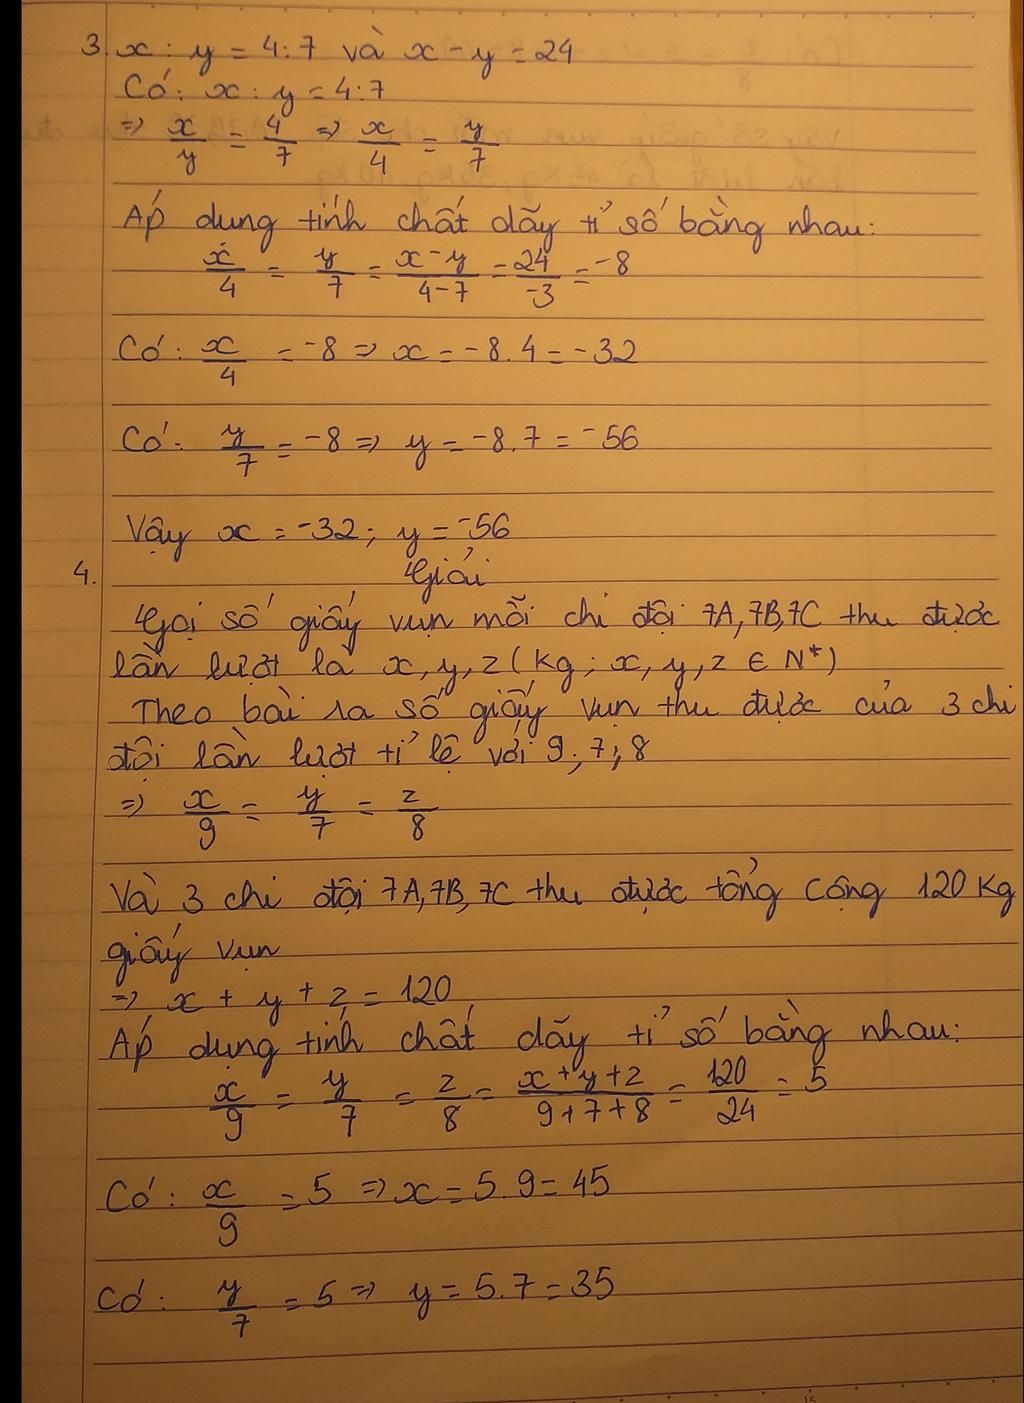 3. x : y = 4 : 7 và x - y = 24
Có: x : y = 4 : 7
=> x/y = 4/7 => x/4 = y/7
Áp dung tính chất dãy tỉ số bằng nhau:
x/4 = y/7 = x-y/4-7 = 24/-3 = -8
Có: x/4 = -8 => x = -8.4 = -32
Có: y/7 = -8 => y = -8.7 = -56
Vậy x = -32; y = -56
4. Giải
Gọi số giấy vụn mỗi chi đội 7A, 7B, 7C thu được
lần lượt là x, y, z (kg; x, y, z ∈ N*)
Theo bài ra số giấy vụn thu được của 3 chi
đội lần lượt tỉ lệ với 9; 7; 8
=> x/9 = y/7 = z/8
Và 3 chi đội 7A, 7B, 7C thu được tổng cộng 120 kg
giấy vụn
=> x + y + z = 120
Áp dụng tính chất dãy tỉ số bằng nhau:
x/9 = y/7 = z/8 = x+y+z/9+7+8 = 120/24 = 5
Có: x/9 = 5 => x = 5.9 = 45
Có: y/7 = 5 => y = 5.7 = 35